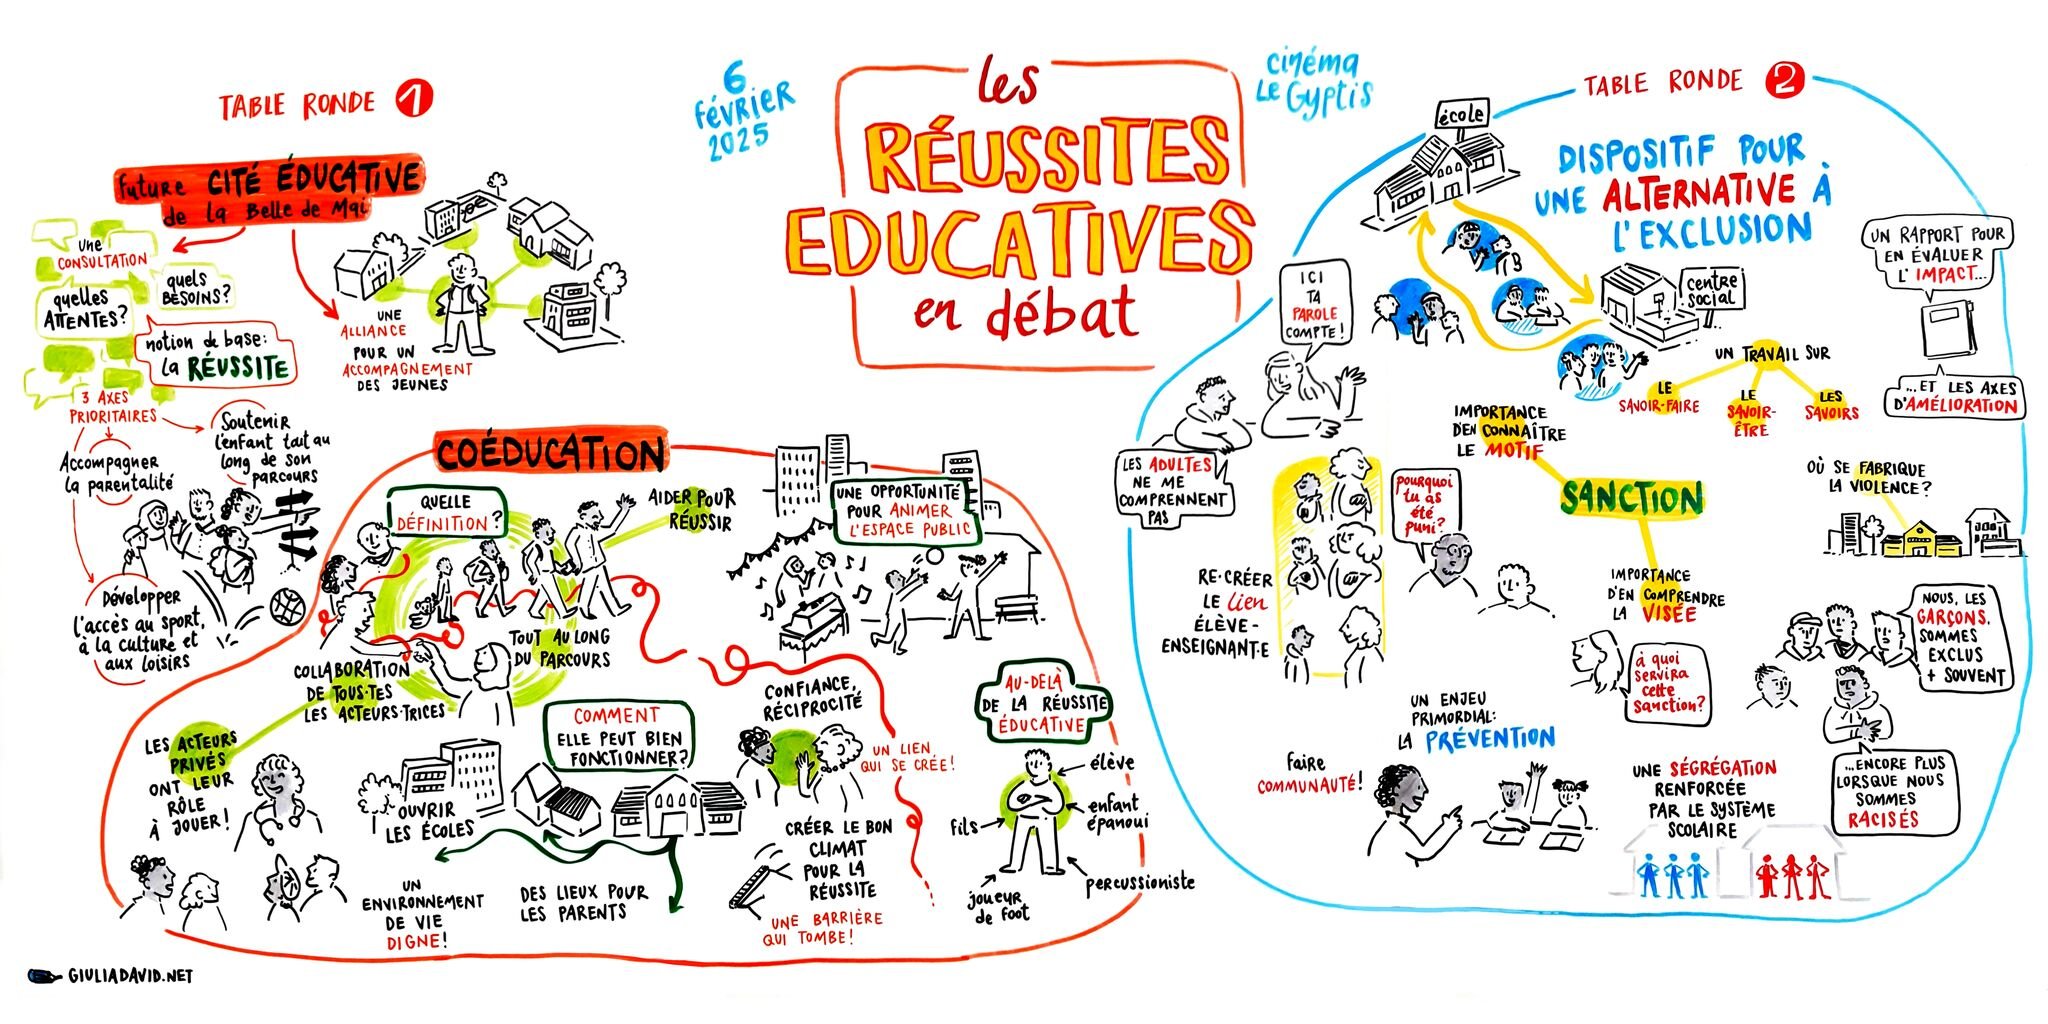 6
février
2025
les
RÉUSSITES
EDUCATIVES
en débat
cinéma
Le Gyptis
TABLE RONDE 1
future CITÉ ÉDUCATIVE
de la Belle de Mai
UNE
CONSULTATION
quels
BESOINS?
quelles
ATTENTES?
notion de base:
la RÉUSSITE
3 AXES
PRIORITAIRES
Soutenir
l'enfant tout au
long de son
parcours
Accompagner
la parentalité
Développer
l'accès au sport,
à la culture et
aux loisirs
UNE
ALLIANCE
POUR UN
ACCOMPAGNEMENT
DES JEUNES
COÉDUCATION
QUELLE
DÉFINITION?
AIDER POUR
RÉUSSIR
TOUT AU LONG
DU PARCOURS
COLLABORATION
DE TOUS·TES
LES ACTEURS·TRICES
LES ACTEURS
PRIVÉS
ONT LEUR
RÔLE
À JOUER!
UNE OPPORTUNITÉ
POUR ANIMER
L'ESPACE PUBLIC
COMMENT
ELLE PEUT BIEN
FONCTIONNER?
OUVRIR
LES ÉCOLES
UN
ENVIRONNEMENT
DE VIE
DIGNE!
DES LIEUX POUR
LES PARENTS
CONFIANCE,
RÉCIPROCITÉ
UN LIEN
QUI SE CRÉE!
CRÉER LE BON
CLIMAT
POUR LA
RÉUSSITE
UNE BARRIÈRE
QUI TOMBE!
AU-DELÀ
DE LA RÉUSSITE
ÉDUCATIVE
élève
enfant
épanoui
fils
percussioniste
joueur
de foot
GIULIADAVID.NET
TABLE RONDE 2
école
DISPOSITIF POUR
UNE ALTERNATIVE À
L'EXCLUSION
centre
social
UN TRAVAIL SUR
LE
SAVOIR-FAIRE
LE
SAVOIR-
ÊTRE
LES
SAVOIRS
UN RAPPORT POUR
EN ÉVALUER
L'IMPACT...
...ET LES AXES
D'AMÉLIORATION
ICI
TA
PAROLE
COMPTE!
LES ADULTES
NE ME
COMPRENNENT
PAS
RE·CRÉER
LE lien
ÉLÈVE-
ENSEIGNANT·E
IMPORTANCE
D'EN CONNAÎTRE
LE MOTIF
SANCTION
pourquoi
tu as
été
puni?
IMPORTANCE
D'EN COMPRENDRE
LA VISÉE
à quoi
servira
cette
sanction?
OÙ SE FABRIQUE
LA VIOLENCE?
NOUS, LES
GARÇONS,
SOMMES
EXCLUS
+ SOUVENT
...ENCORE PLUS
LORSQUE NOUS
SOMMES
RACISÉS
UN ENJEU
PRIMORDIAL:
LA PRÉVENTION
faire
COMMUNAUTÉ!
UNE SÉGRÉGATION
RENFORCÉE
PAR LE SYSTÈME
SCOLAIRE